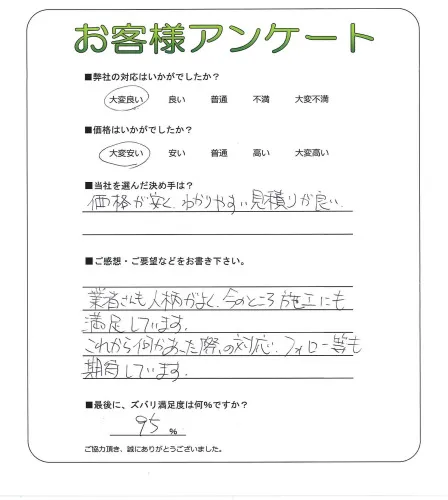 お客様アンケート
■弊社の対応はいかがでしたか？
大変良い 良い 普通 不満 大変不満
■価格はいかがでしたか？
大変安い 安い 普通 高い 大変高い
■当社を選んだ決め手は？
価格が安く、わかりやすい見積りが良い
■ご感想・ご要望などをお書き下さい。
業者さんも人柄がよく、今のところ施工にも
満足しています。
これから何かあった際、の対応、フォロー等も
期待しています。
■最後に、ズバリ満足度は何％ですか？
95 ％
ご協力頂き、誠にありがとうございました。